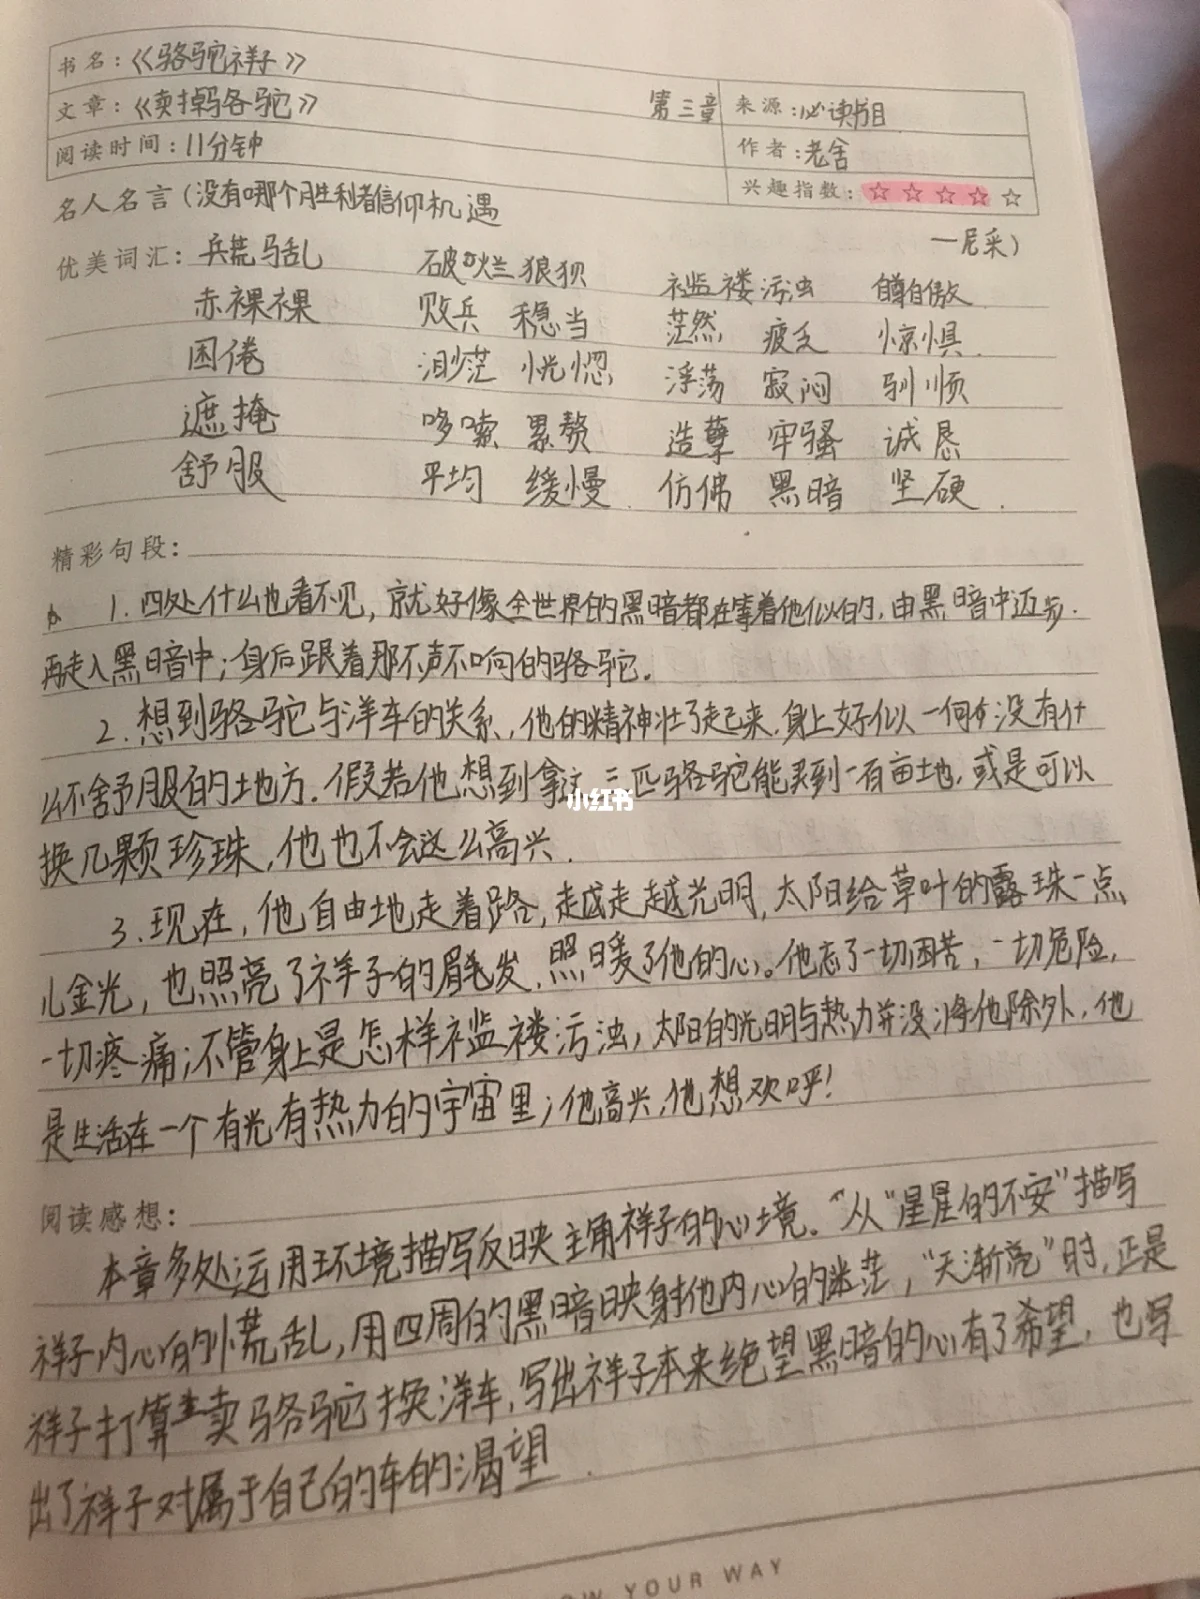 书名：《骆驼祥子》
文章：《卖掉骆驼》 第三章 来源：必读书目
阅读时间：11分钟 作者：老舍
兴趣指数：☆☆☆☆☆
名人名言（没有哪个胜利者信仰机遇
—尼采）
优美词汇：兵荒马乱 破烂 狼狈 褴褛 污浊 自傲
赤裸裸 败兵 稳当 茫然 疲乏 惊惧
困倦 渺茫 恍惚 浮荡 寂闷 驯顺
遮掩 哆嗦 累赘 造孽 牢骚 诚恳
舒服 平均 缓慢 仿佛 黑暗 坚硬
精彩句段：
1.四处什么也看不见，就好像全世界的黑暗都在等着他似的，由黑暗中迈步.
再走入黑暗中；身后跟着那不声不响的骆驼.
2.想到骆驼与洋车的关系，他的精神壮了起来.身上好似一向没有什
么不舒服的地方.假若他想到拿这三匹骆驼能买到一百亩地，或是可以
小红书
换几颗珍珠，他也不会这么高兴.
3.现在，他自由地走着路，越走越光明，太阳给草叶的露珠一点
儿金光，也照亮了祥子的眉发，照暖了他的心。他忘了一切困苦，一切危险，
一切疼痛；不管身上是怎样褴褛污浊，太阳的光明与热力并没将他除外，他
是生活在一个有光有热力的宇宙里；他高兴，他想欢呼！
阅读感想：
本章多处运用环境描写反映主角祥子的心境。“从“星星的不安”描写
祥子内心的慌乱，用四周的黑暗映射他内心的迷茫，“天渐亮”时，正是
祥子打算卖骆驼换洋车，写出祥子本来绝望黑暗的心有了希望，也写
出了祥子对属于自己的车的渴望.
OW YOUR WAY